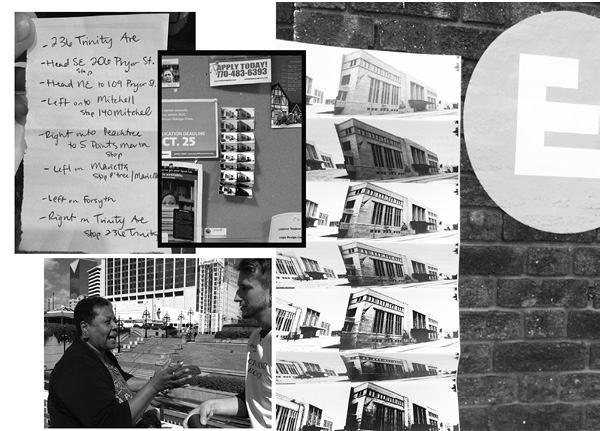 - 236 Trinity Ave
- Head SE 206 Pryor St.
stop
- Head NE to 109 Pryor St.
- Left onto Mitchell
stop 140 Mitchell
- Right onto Peachtree
to 5 Points marta
stop
- Left on Marietta
stop P'tree/Marietta
- Left on Forsyth
- Right on Trinity Ave
stop 236 Trinity
APPLY TODAY!
770-483-6393
CATION DEADLINE
CT. 25
E